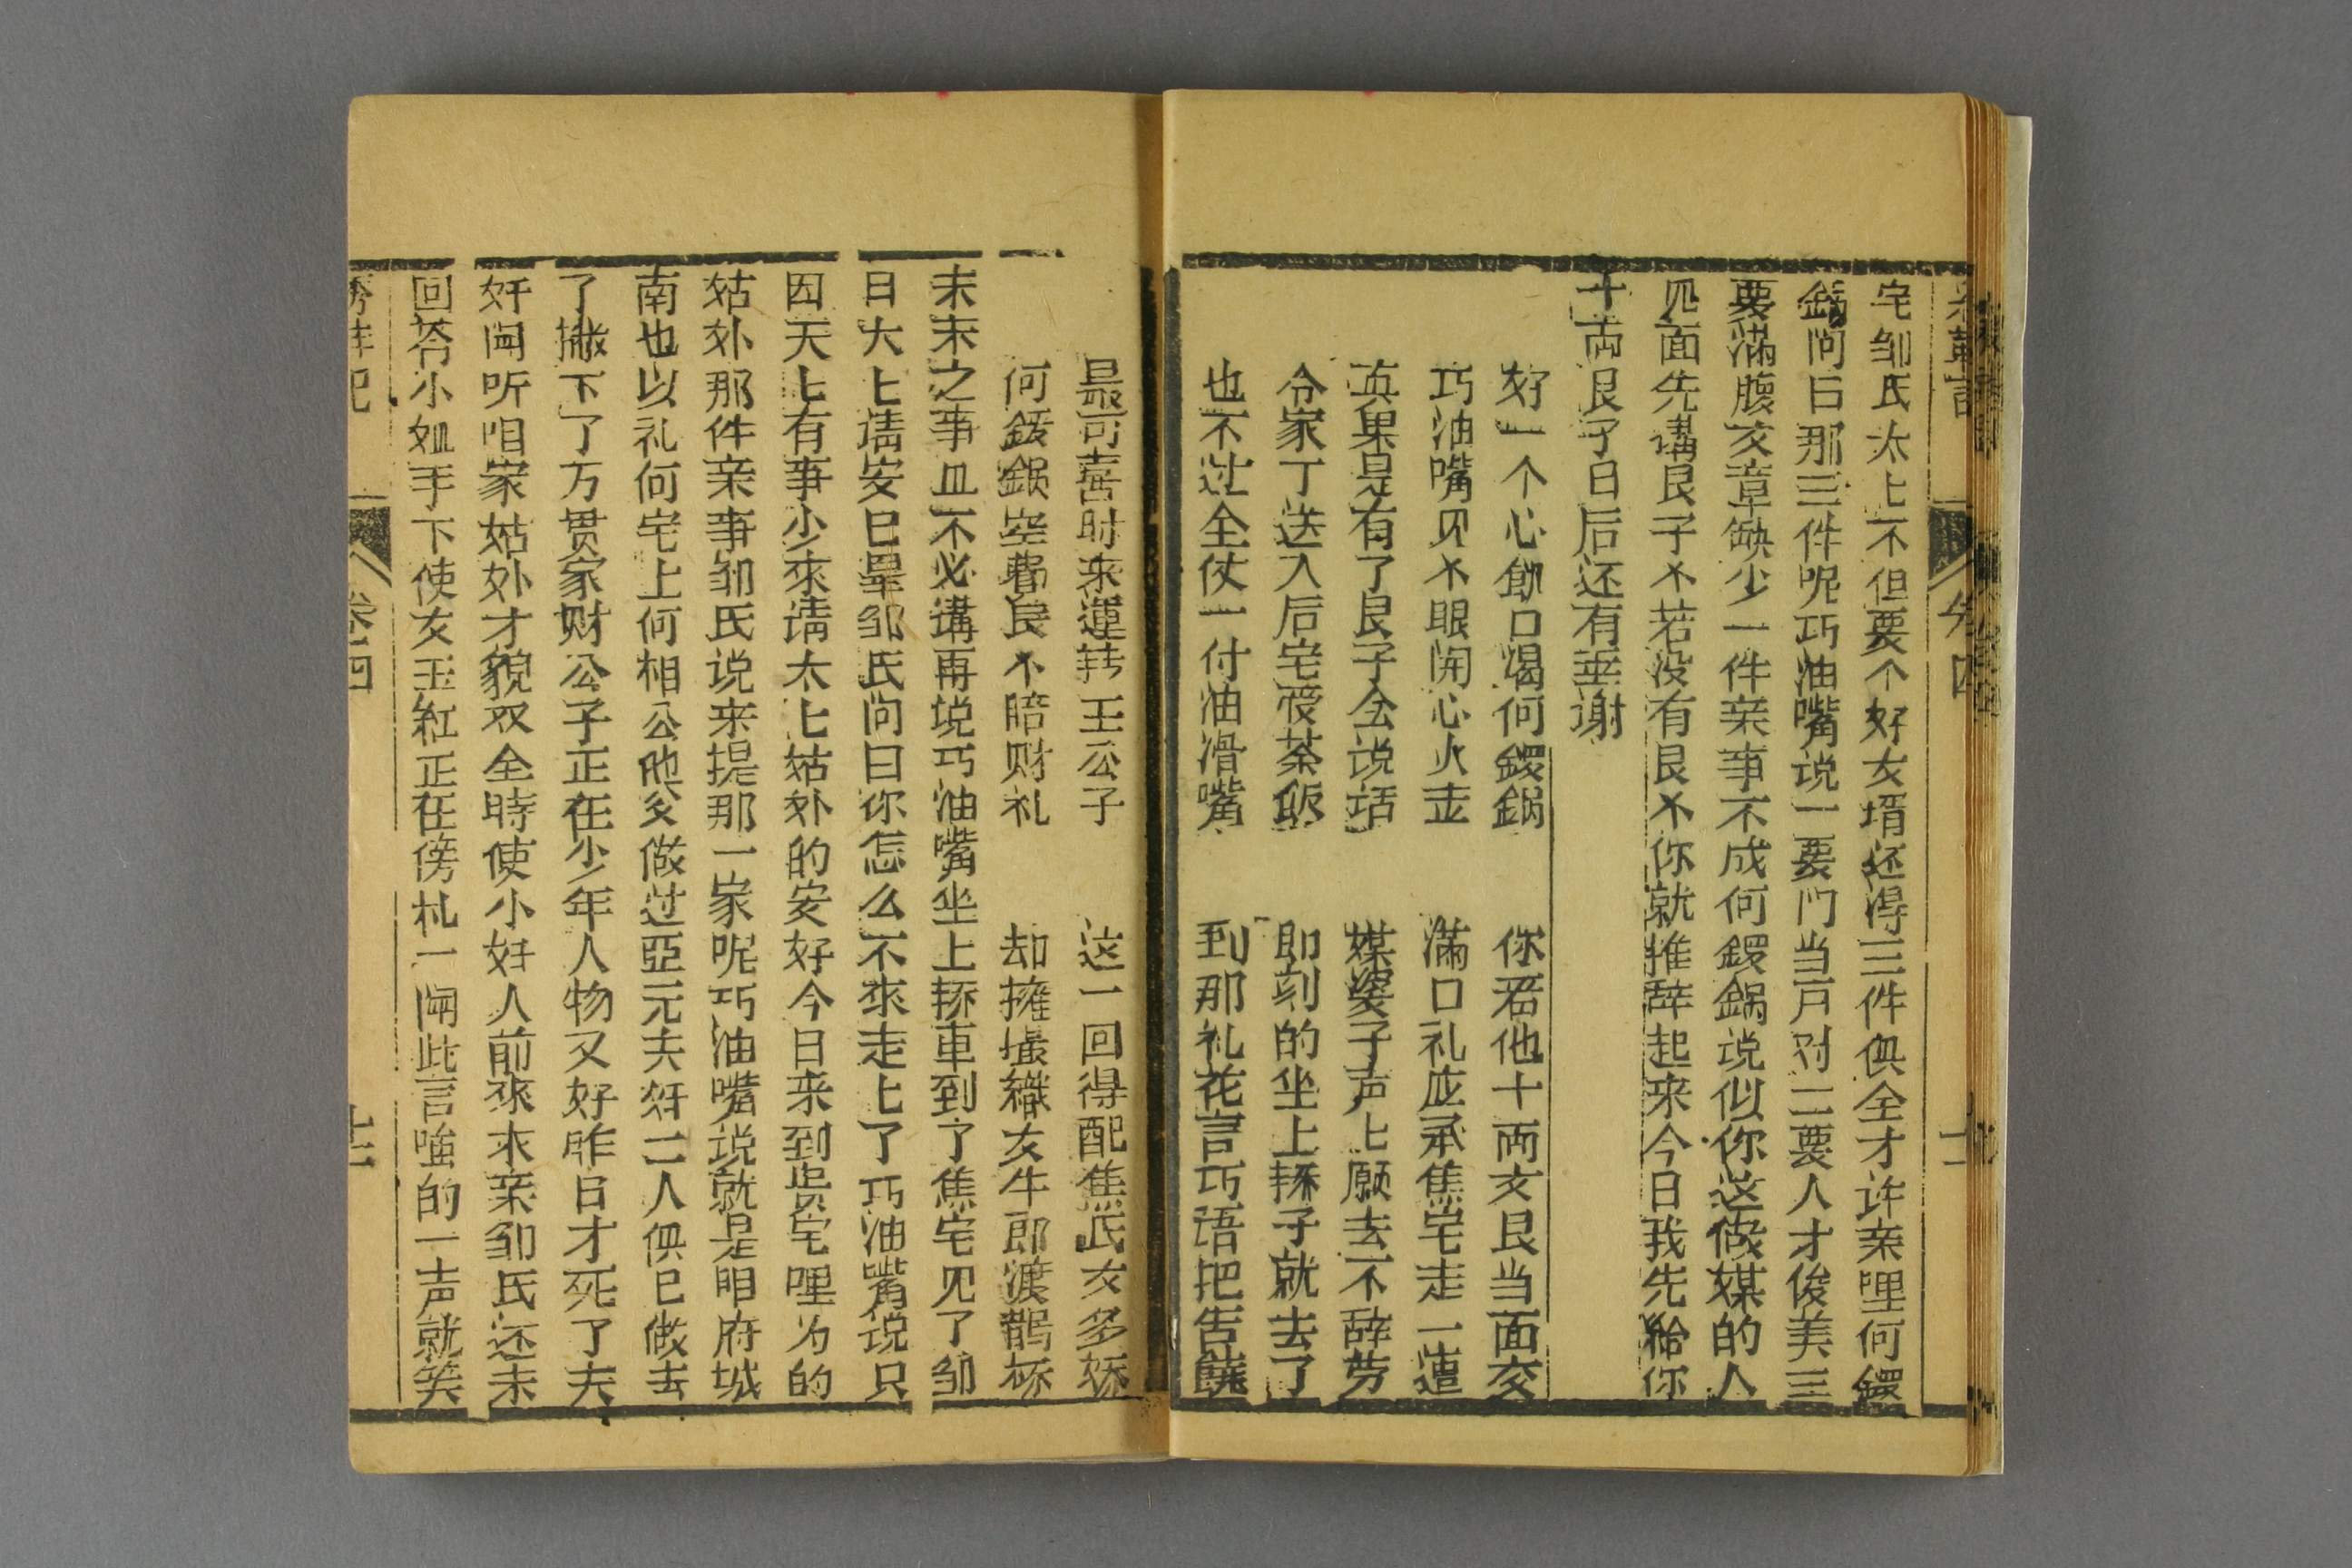 宅邹氏太〻不但要个好女壻还得三件俱全才许亲哩何鏍
鍋问曰那三件呢巧油嘴说一要门当户对二要人才俊美三
要满腹文章缺少一件亲事不成何鏍鍋说似你这做媒的人
见面先講艮子不若没有艮不你就推辞起来今日我先给你
十両艮子日后还有重谢
好一个心飢口渴何鏍鍋 你看他十両文艮当面交
巧油嘴见不眼闹心火走 满口礼应承焦宅走一遭
真果是有了艮子会说话 媒婆子声〻愿去不辞劳
令家丁送入后宅受茶飯 即刻的坐上轿子就去了
也不过全仗一付油滑嘴 到那礼花言巧语把告饒
最可喜时来運转王公子 这一回得配焦氏女多娇
何鏍鍋空費艮不賠财礼 却擁撮織女牛郎渡鹊桥
未末之事且不必講再说巧油嘴坐上轿車到了焦宅见了邹
日大〻请安已畢邹氏问曰你怎么不來走〻了巧油嘴说只
因天〻有事少來请太〻姑外的安好今日来到贵宅哩为的
姑外那件亲事邹氏说来提那一家呢巧油嘴说就是明府城
南也以礼何宅上何相公他父做过亞元夫妍二人俱已做去
了撇下了万贯家财公子正在少年人物又好昨日才死了夫
奸闻听咱家姑外才貌双全時使小奸人前來求亲邹氏还未
回荅小姐手下使女玉紅正在傍札一闻此言嗤的一声就笑
卷四
十二